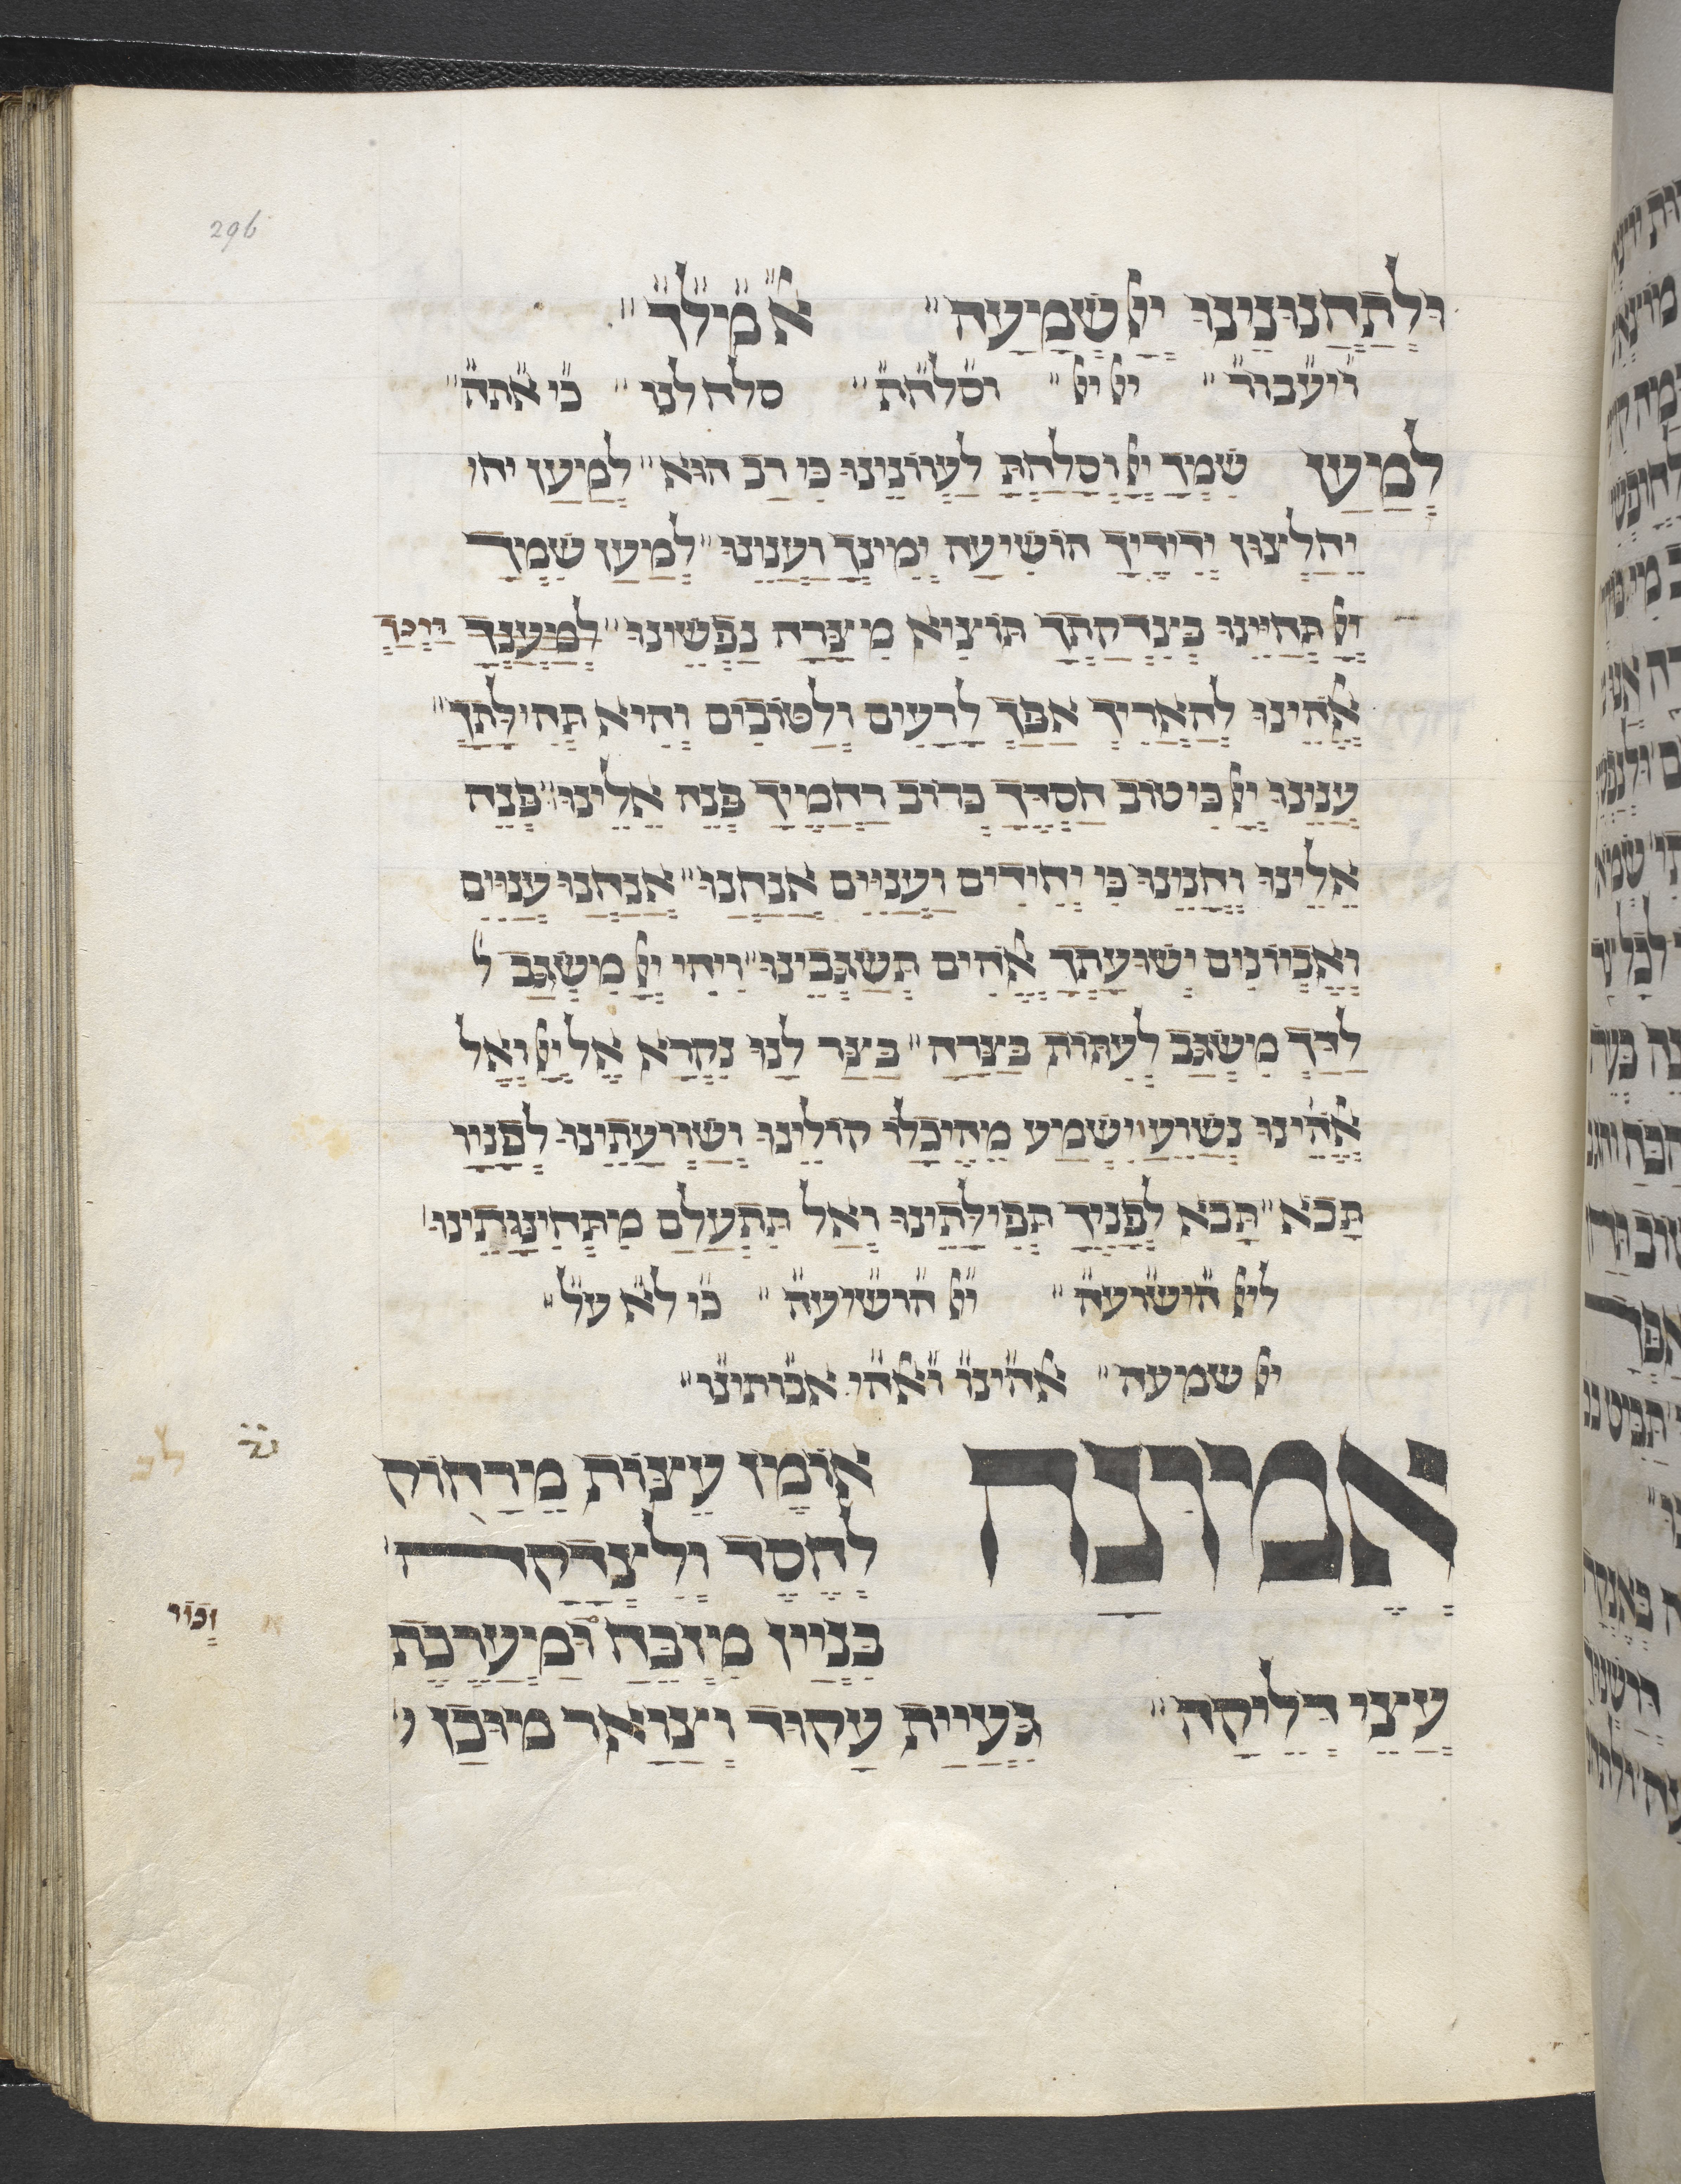 296
וּלְתַחֲנוּנֵינוּ יְיָ שְׁמָעָה" א"מ"ל"ך"
ויעבור" יי יי" וסלחת" סלח לנו" כי אתה"
לְמַעַן שִׁמְךָ יְיָ וְסָלַחְתָּ לַעֲוֹנֵינוּ כִּי רַב הוּא" לְמַעַן יחו
יֵחָלְצוּן יְדִידֶיךָ הוֹשִׁיעָה יְמִינְךָ וַעֲנֵינוּ" לְמַעַן שִׁמְךָ
יְיָ תְּחַיֵּינוּ בְּצִדְקָתְךָ תּוֹצִיא מִצָּרָה נַפְשֵׁינוּ" לְמַעַנְךָ
אֱלֹהֵינוּ לְהַאֲרִיךְ אַפְּךָ לָרָעִים וְלַטּוֹבִים וְהִיא תְּהִילָּתֶךָ"
עֲנֵינוּ יְיָ כִּי טוֹב חַסְדֶּךָ כְּרוֹב רַחֲמֶיךָ פְּנֵה אֵלֵינוּ" פְּנֵה
אֵלֵינוּ וְחָנֵינוּ כִּי יְחִידִים וַעֲנִיִּים אֲנָחְנוּ" אֲנַחְנוּ עֲנִיִּים
וְאֶבְיוֹנִים יְשׁוּעָתְךָ אֱלֹהִים תְּשַׂגְּבֵינוּ" וִיהִי יְיָ מִשְׂגָּב ל
לַדָּךְ מִשְׂגָּב לְעִתּוֹת בַּצָּרָה" בַּצַּר לָנוּ נִקְרָא אֶל יְיָ וְאֶל
אֱלֹהֵינוּ נְשַׁוֵּעַ" יִשְׁמַע מֵהֵיכָלוֹ קוֹלֵינוּ וְשַׁוְעָתֵינוּ לְפָנָיו
תָּבֹא" תָּבֹא לְפָנֶיךָ תְּפִילָּתֵינוּ וְאַל תִּתְעַלַּם מִתְּחִינּוֹתֵינוּ
ליי הישועה" יי הושיעה" כי לא על"
יי שמעה" אלהינו ואלהי אבותינו"
אֱמוּנָה אוֹמֶן עֵיצוֹת מֵרָחוֹק
לְחֶסֶד וְלִצְדָקָה
בִּנְיַין מִזְבֵּחַ וּמַעֲרֶכֶת
עֲצֵי דְלֵיקָה" גְּעִיַּית עָקוּד וְצַוָּאר